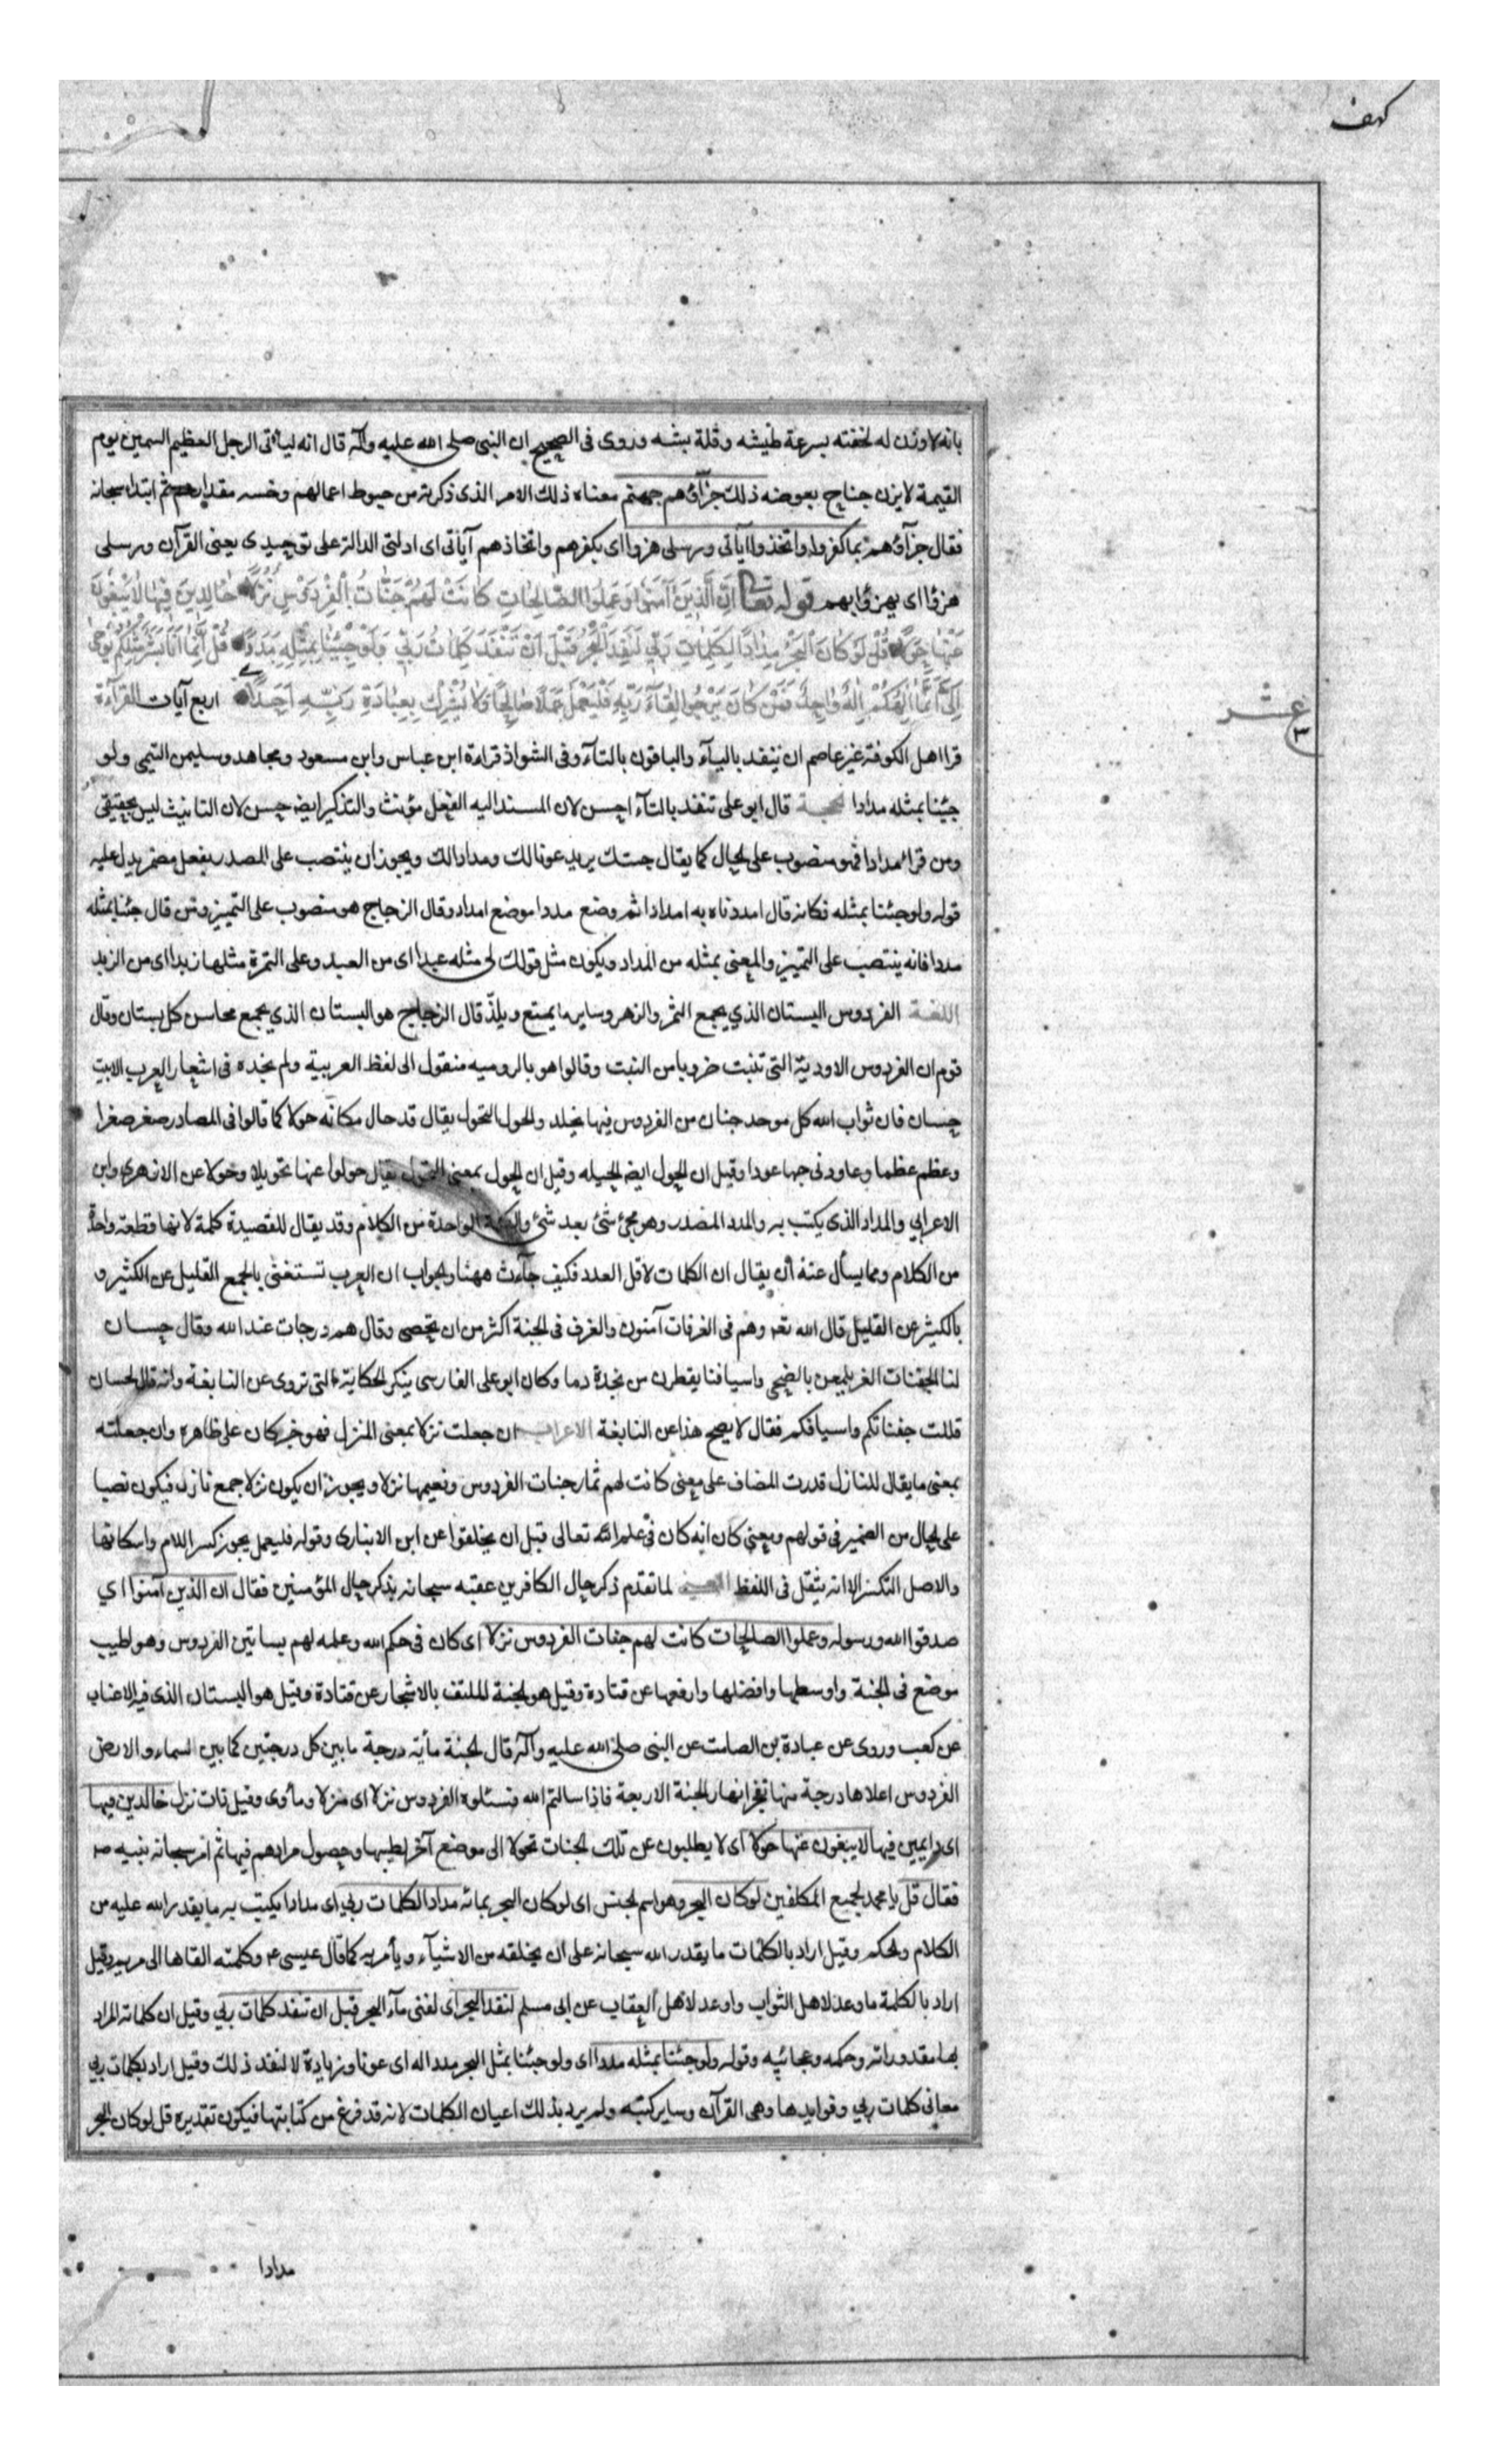 كهف
بانه لا وزن له لخفته بسرعة طيشه وقلة تثبته وروى فى الصحيح ان النبى صلى الله عليه وآله قال انه ليأتى الرجل العظيم السمين يوم
القيمة لا يزن جناح بعوضه ذلك جزآؤهم جهنم معناه ذلك الامر الذى ذكرته من حبوط اعمالهم وخسه مقدارهم ثم ابتدا سبحانه
فقال جزآؤهم بما كفروا واتخذوا آياتى ورسلى هزوا اى بكفرهم واتخاذهم آياتى اى ادلتى الدالة على توحيدى يعنى القرآن ورسلى
هزؤا اى يهزؤا بهم قوله تعا اِنَّ الَّذينَ آمَنُوا وَعَمِلُوا الصّالِحاتِ كانَتْ لَهُمْ جَنّاتُ الْفِرْدَوْسِ نُزُلًا خالِدينَ فيها لا يَبْغُونَ
عَنْها حِوَلًا قُلْ لَوْ كانَ الْبَحْرُ مِدادًا لِكَلِماتِ رَبّي لَنَفِدَ الْبَحْرُ قَبْلَ اَنْ تَنْفَدَ كَلِماتُ رَبّي وَلَوْ جِئْنا بِمِثْلِهِ مَدَدًا قُلْ اِنَّما اَنَا بَشَرٌ مِثْلُكُمْ يُوحى
اِلَيَّ اَنَّما اِلهُكُمْ اِلهٌ واحِدٌ فَمَنْ كانَ يَرْجُوا لِقاءَ رَبِّهِ فَلْيَعْمَلْ عَمَلًا صالِحًا وَلا يُشْرِكْ بِعِبادَةِ رَبِّهِ اَحَدًا اربع آيات القرآءة
ع عشر ٣
قرا اهل الكوفة غير عاصم ان ينفد باليآء والباقون بالتآء وفى الشواذ قراءة ابن عباس وابن مسعود ومجاهد وسليمن التيمى ولو
جئنا بمثله مدادا الحجة قال ابو على تنفد بالتآء احسن لان المسند اليه الفعل مؤنث والتذكير ايضا حسن لان التانيث ليس بحقيقى
ومن قرا مدادا فهو منصوب على الحال كما يقال جئتك بزيد عونا لك ومدادا لك ويجوز ان ينتصب على المصدر بفعل مضمر يدل عليه
قوله ولو جئنا بمثله فكانه قال امددناه به امدادا ثم وضع مددا موضع امداد وقال الزجاج هو منصوب على التميز ومن قال جئنا بمثله
مددا فانه ينتصب على التمييز والمعنى بمثله من المداد ويكون مثل قولك لى مثله عبدا اى من العبيد وعلى التمرة مثلها زبدا اى من الزبد
اللغة الفردوس البستان الذي يجمع الثمر والزهر وساير ما يمتع ويلذ قال الزجاج هو البستان الذي يجمع محاسن كل بستان وقال
قوم ان الفردوس الاودية التى تنبت ضروبا من النبت وقالوا هو بالروميه منقول الى لفظ العربية ولم نجده فى اشعار العرب الا بيت
حسان فان ثواب الله كل موحد جنان من الفردوس فيها يخلد والحول التحول يقال قد حال مكانه حولا كما قالوا فى المصادر صغر صغرا
وعظم عظما وعاودنى حبها عودا وقيل ان الحول ايضا الحيله وقيل ان الحول بمعنى التحول يقال حولوا عنها تحويلا وحولا عن الازهرى وابن
الاعرابي والمداد الذى يكتب به والمدد المصدر وهو مجئ شئ بعد شئ والكلمة الواحدة من الكلام وقد يقال للقصيدة كلمة لانها قطعة واحدة
من الكلام ومما يسأل عنه أن يقال ان الكلمات لاقل العدد فكيف جآءت ههنا والجواب ان العرب تستغنى بالجمع القليل عن الكثير و
بالكثير عن القليل قال الله تعا وهم فى الغرفات آمنون والغرف فى الجنة اكثر من ان تحصى وقال هم درجات عند الله وقال حسان
لنا الجفنات الغر يلمعن بالضحى واسيافنا يقطرن من نجدة دما وكان ابو على الفارسى ينكر الحكاية التى تروى عن النابغة وانه قال لحسان
قللت جفناتكم واسيافكم فقال لا يصح هذا عن النابغة الاعراب ان جعلت نزلا بمعنى المنزل فهو خبر كان على ظاهره وان جعلته
بمعنى ما يقال للنازل قدرت المضاف على معنى كانت لهم ثمار جنات الفردوس ونعيمها نزلا ويجوز ان يكون نزلا جمع نازل فيكون نصبا
على الحال من الضمير فى قولهم ومعنى كان انه كان فى علم الله تعالى قبل ان يخلقوا عن ابن الانبارى وقوله فليعمل يجوز كسر اللام واسكانها
والاصل الكسر الا انه يثقل فى اللفظ المعنى لما تقدم ذكر حال الكافرين عقبه سبحانه بذكر حال المؤمنين فقال ان الذين آمنوا اي
صدقوا الله ورسوله وعملوا الصالحات كانت لهم جنات الفردوس نزلا اى كان فى حكم الله وعلمه لهم بساتين الفردوس وهو اطيب
موضع فى الجنة واوسطها وافضلها وارفعها عن قتادة وقيل هو الجنة الملتف بالاشجار عن قتادة وقيل هو البستان الذى فيه الاعناب
عن كعب وروى عن عبادة بن الصامت عن النبى صلى الله عليه وآله قال الجنة مأية درجة ما بين كل درجتين كما بين السماء والارض
الفردوس اعلاها درجة منها تفجر انهار الجنة الاربعة فاذا سالتم الله فسئلوه الفردوس نزلا اى منزلا ومأوى وقيل ذات نزل خالدين فيها
اى دايمين فيها لا يبغون عنها حولا اى لا يطلبون عن تلك الجنات تحولا الى موضع آخر لطيبها وحصول مرادهم فيها ثم امر سبحانه نبيه ص
فقال قل يا محمد لجميع المكلفين لو كان البحر وهو اسم الجنس اى لو كان البحر بمائه مدادا لكلمات ربي اى مدادا يكتب به ما يقدر الله عليه من
الكلام والحكم وقيل اراد بالكلمات ما يقدر الله سبحانه على ان يخلقه من الاشيآء ويأمر به كما قال عيسى ع وكلمته القاها الى مريم وقيل
اراد بالكلمة ما وعد لاهل الثواب واوعد لاهل العقاب عن ابى مسلم لنفد البحر اى لفنى مآء البحر قبل ان تنفد كلمات ربي وقيل ان كلماته المراد
بها مقدوراته وحكمه وعجائبه وقوله ولو جئنا بمثله مددا اى ولو جئنا بمثل البحر مددا له اى عونا وزيادة لا لنفد ذلك وقيل اراد بكلمات ربي
معانى كلمات ربي وفوايدها وهى القرآن وساير كتبه ولم يرد بذلك اعيان الكلمات لانه قد فرغ من كتابتها فيكون تقديره قل لو كان البحر
مدادا